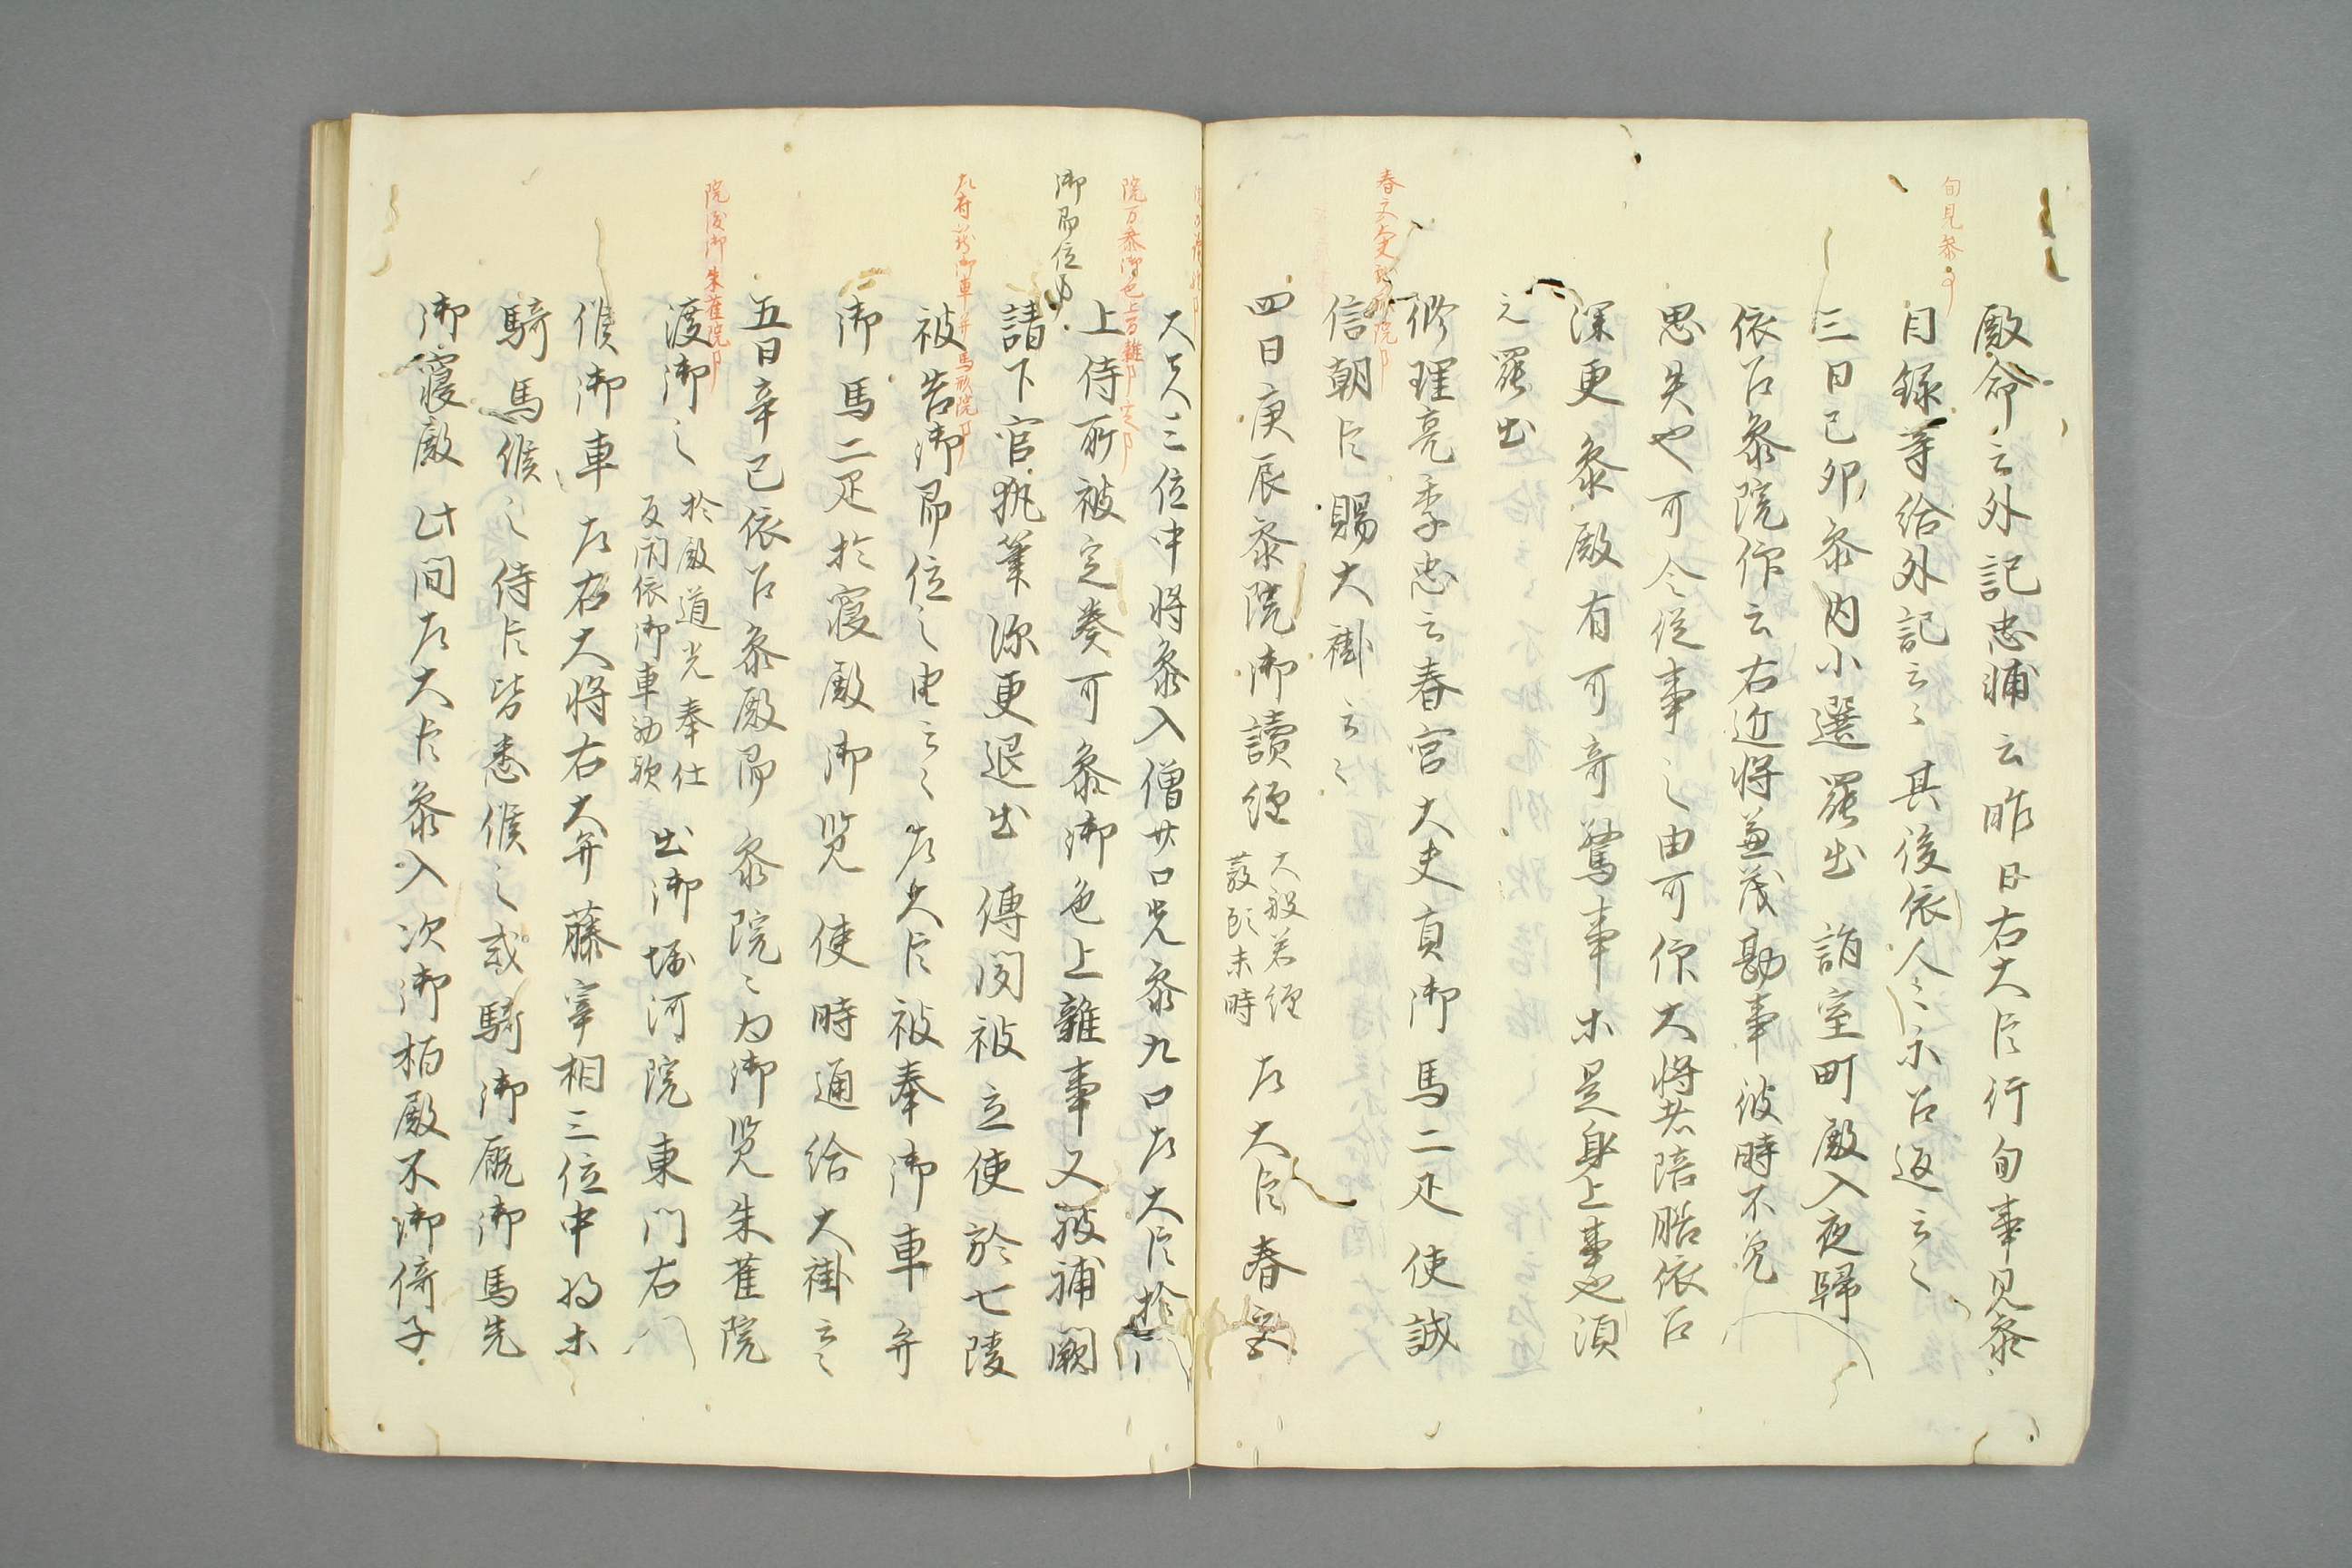 旬見参事
殿命云外記忠輔云昨日右大臣行旬事見参
目録等給外記云〻其後依人〻示召返云〻
三日己卯参内小選罷出詣室町殿入夜歸
依召参院仰云右近将兼茂勘事彼時不覚
思失也可令従事之由可仰大将者陪膳依召
深更参殿有可奇驚事等是身上事也須
之罷出
修理亮季忠云春宮大夫貢御馬二疋使誠
信朝臣賜大褂云〻
四日庚辰参院御讀経 大般若経 發願未時 左大臣春宮
大夫三位中将参入僧廿口先参九口左大臣於
院万参御也上万雑事定事
上侍所被定奏可参御色上雑事又被補闕
御即位事
請下官執筆深更退出 傳聞被立使於七陵
被告御即位之由云〻左大臣被奉御車并
御馬二疋於寝殿御覧使時通給大褂云〻
五日辛巳依召参殿即参院〻為御覧朱雀院
院渡御朱雀院事
渡御之 於殿道光奉仕 反閇依御車初歟 出御堀河院東門右
候御車左右大将右大弁藤宰相三位中将等
騎馬候之侍臣皆悉候之或騎御厩御馬先
御寝殿此間左大臣参入次御栢殿不御倚子